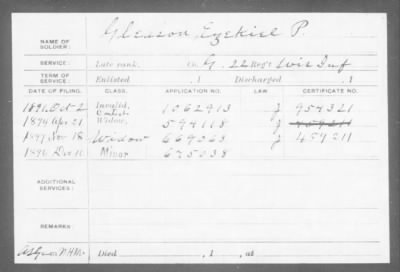 NAME OF SOLDIER: Gleason, Ezekiel P.
SERVICE: Late rank, Co. G, 22 Reg't Wis Inf
TERM OF SERVICE: Enlisted , 1 Discharged , 1
DATE OF FILING. CLASS. APPLICATION NO. LAW CERTIFICATE NO.
1891 Oct 2 Invalid, 1062413 J 954321
1894 Apr 21 Widow, 594118 J 459211
1897 Nov 18 Widow 669568 J 459211
1896 Dec 10 Minor 645038
ADDITIONAL SERVICES:
REMARKS:
Died , 1 , at